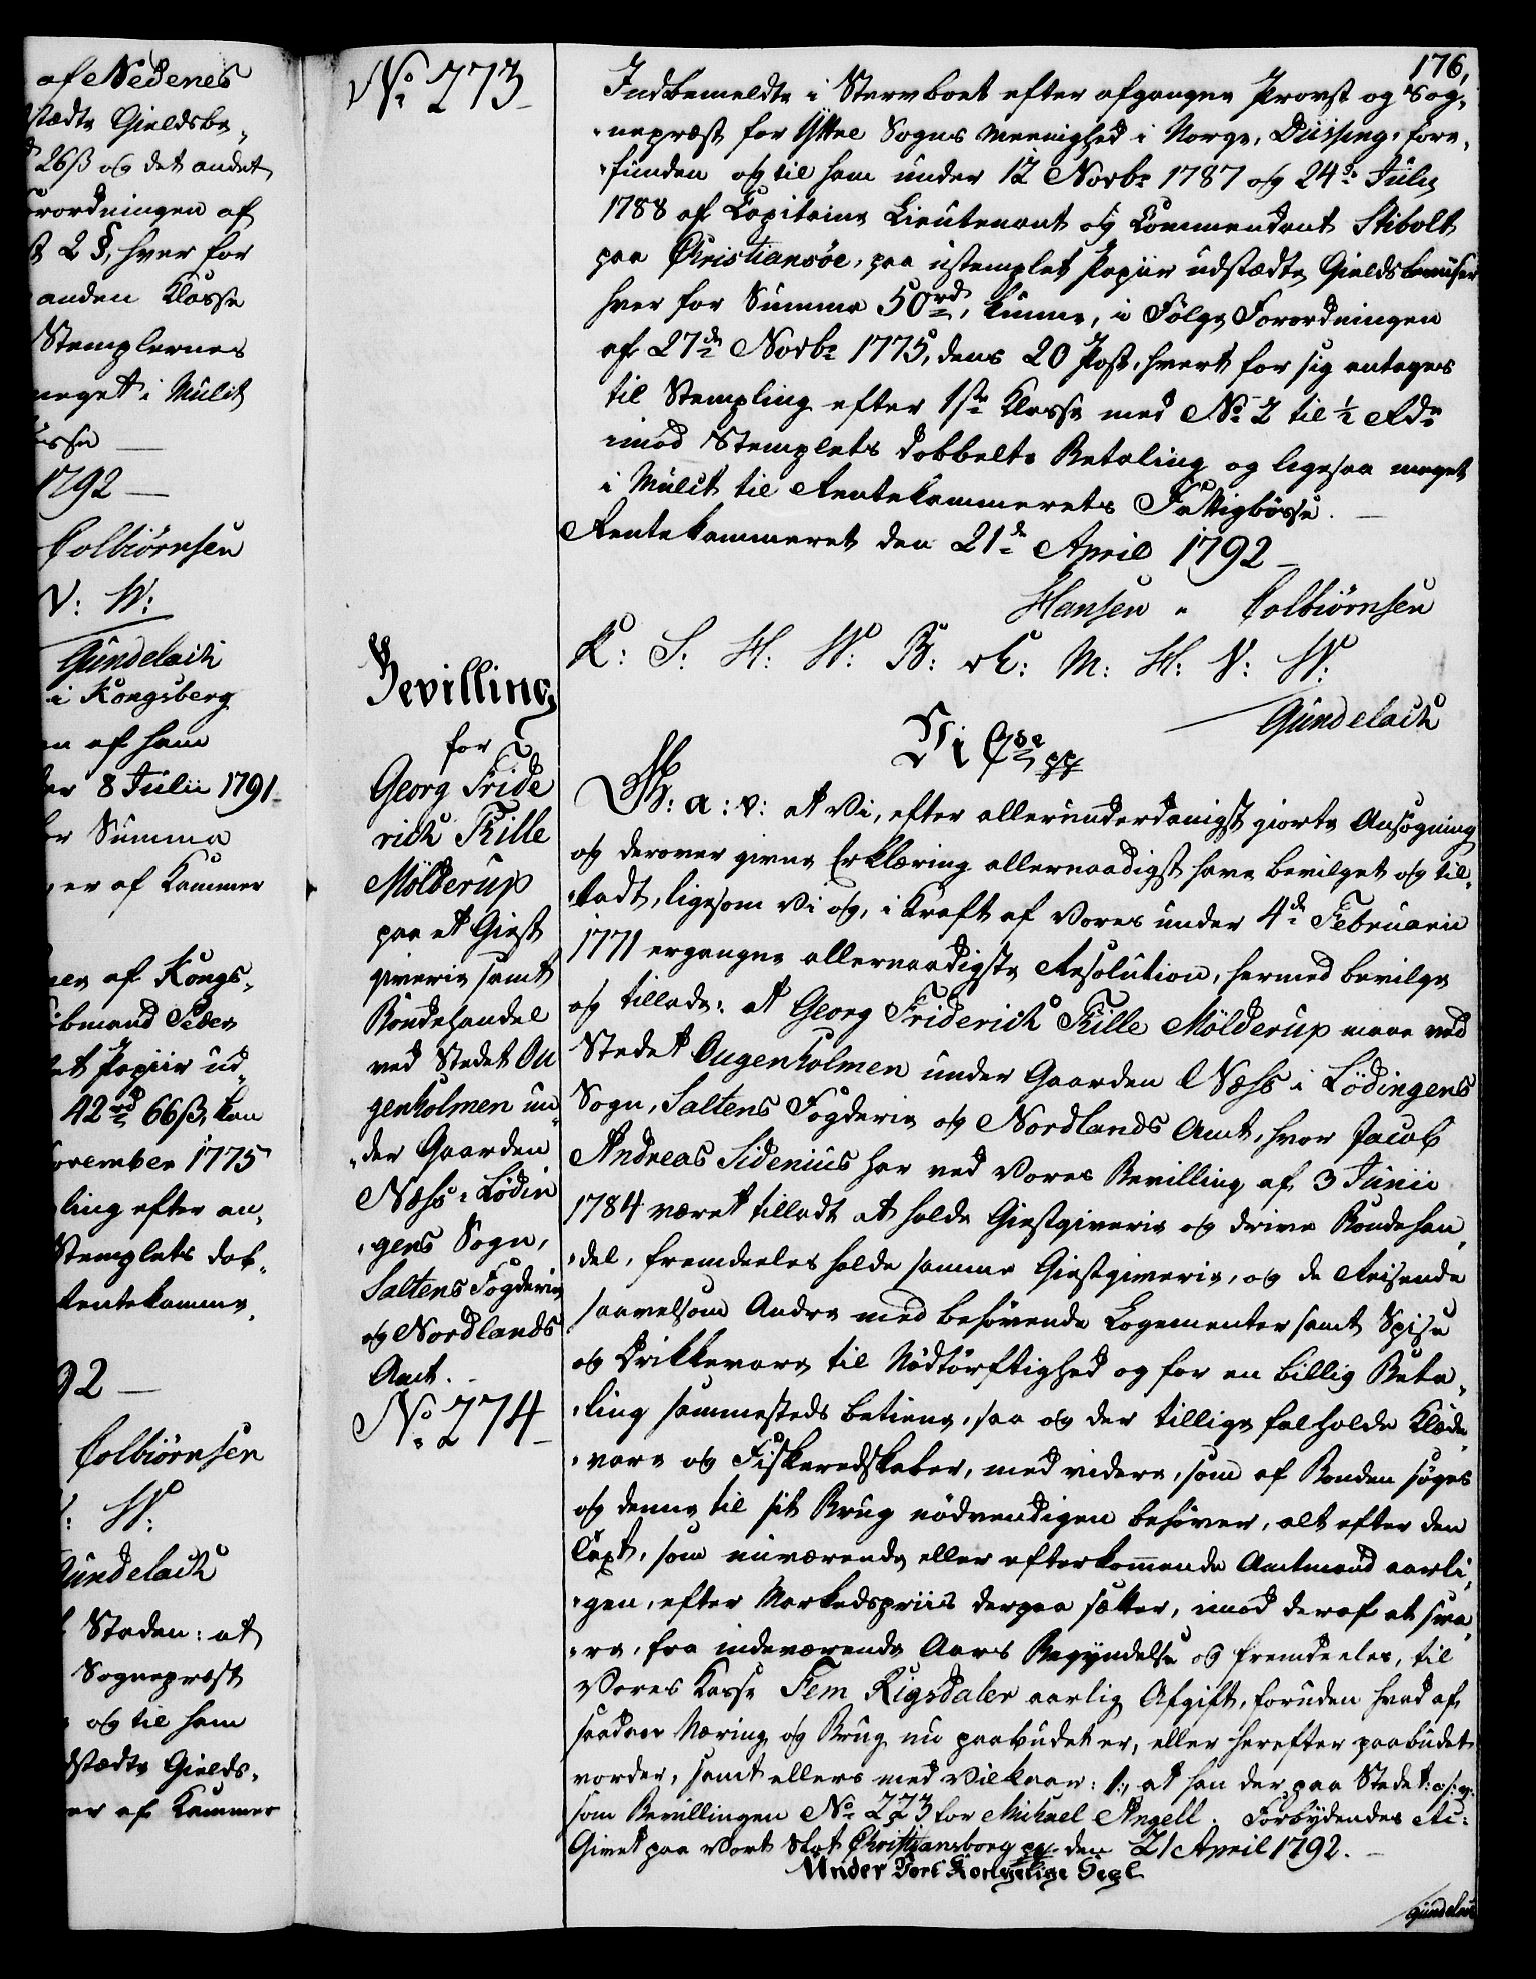 af Nedenes
stædte Gieldsbe„
26ß og det andet
orordningen af
2 §, hver for
anden Klasse
Stemplernes
meget i Mulct
1792 —
Colbiørnsen
V: W:
Gundelach
i Kongsberg
en af ham
8 Julii 1791
Summa
er af Kammer
nen af Kongs„
Peder
et Papiir ud„
42rd 66ß, kan
ovember 1775
ling efter an„
Stemplets dob„
Rentekamme„
92 —
Colbiørnsen
W:
Gundelach
Staden: at
Sognepræst
og til ham
dstædte Gields„
er af Kammer
176,
No 273
Indbemeldte i Stervboet efter afgangne Provst og Sog„
„nepræst for Yttre Sogns Meenighed i Norge, Düssing, fore„
„funden og til ham under 12 Novbr 1787 og 24de Julii
1788 af Capitaine Lieutenant og Commendant Stibolt
paa Christiansøe, paa ustemplet Papiir udstædte Gieldsbeviser
hver for Summa 50rd, kunne, i Følge Forordningen
af 27de Novbr 1775, dens 20 Post, hvert for sig antages
til Stempling efter 1ste Klasse med No 2 til ½ Rdr
imod Stemplets dobbelte Betaling og ligesaa meget
i Mulct til Rentekammerets Fattigbøsse. —
Rentekammeret den 21de April 1792 —
Hansen „ Colbiørnsen
K: S: H: W: B: rk: M: H: V: W:
Gundelach
Bevilling
for
Georg Fride
rich Kille
Mölderup
paa et Giest
giverie samt
Bondehandel
ved Stedet Ou
genholmen un„
„der Gaarden
Næss i Lödin
„gens Sogn,
Saltens Fogderie
og Nordlands
Amt.
No 274
Vi C 7de pp
G: a: v: at Vi, efter allerunderdanigst giorte Ansøgning
og derover givne Erklæring allernaadigst have bevilget og til„
„ladt, ligesom Vi og, i Kraft af Vores under 4de Februarii
1771 ergangne allernaadigste Resolution, hermed bevilge
og tillade: at Georg Friderich Kille Mölderup maae ved
Stedet Ougenholmen under Gaarden Næss i Lödingens
Sogn, Saltens Fogderie og Nordlands Amt, hvor Jacob
Andreas Sidenius har ved Vores Bevilling af 3 Junii
1784 været tilladt at holde Giestgiverie og drive Bondehan„
„del, fremdeeles holde samme Giestgiverie, og de Reisende
saavelsom Andre med behøvende Logementer samt Spise
og Drikkevare til Nödtörftighed og for en billig Beta„
„ling sammesteds betiene, saa og der tillige falholde Klæde„
„vare og Fiskeredskaber, med videre, som af Bonden søges
og denne til sit Brug nödvendigen behøver, alt efter den
Taxt, som nuværende eller efterkommende Amtmand aarli„
„gen, efter Markedspriis derpaa sætter, imod deraf at sva„
„re, fra indeværende Aars Begyndelse og fremdeeles, til
Vores Kasse Fem Rigsdaler aarlig Afgift, foruden hvad af
saadan Næring og Brug nu paabudet er, eller herefter paabudet
vorder, samt ellers med Vilkaar: 1., at han der paa Stedet: o: s: v:
som Bevillingen No 223 for Michael Angell. Forbydendes Ac:
Givet paa Vort Slot Christiansborg pp. den 21 April 1792. —
Under Vort Kongelige Segl
Gundelach